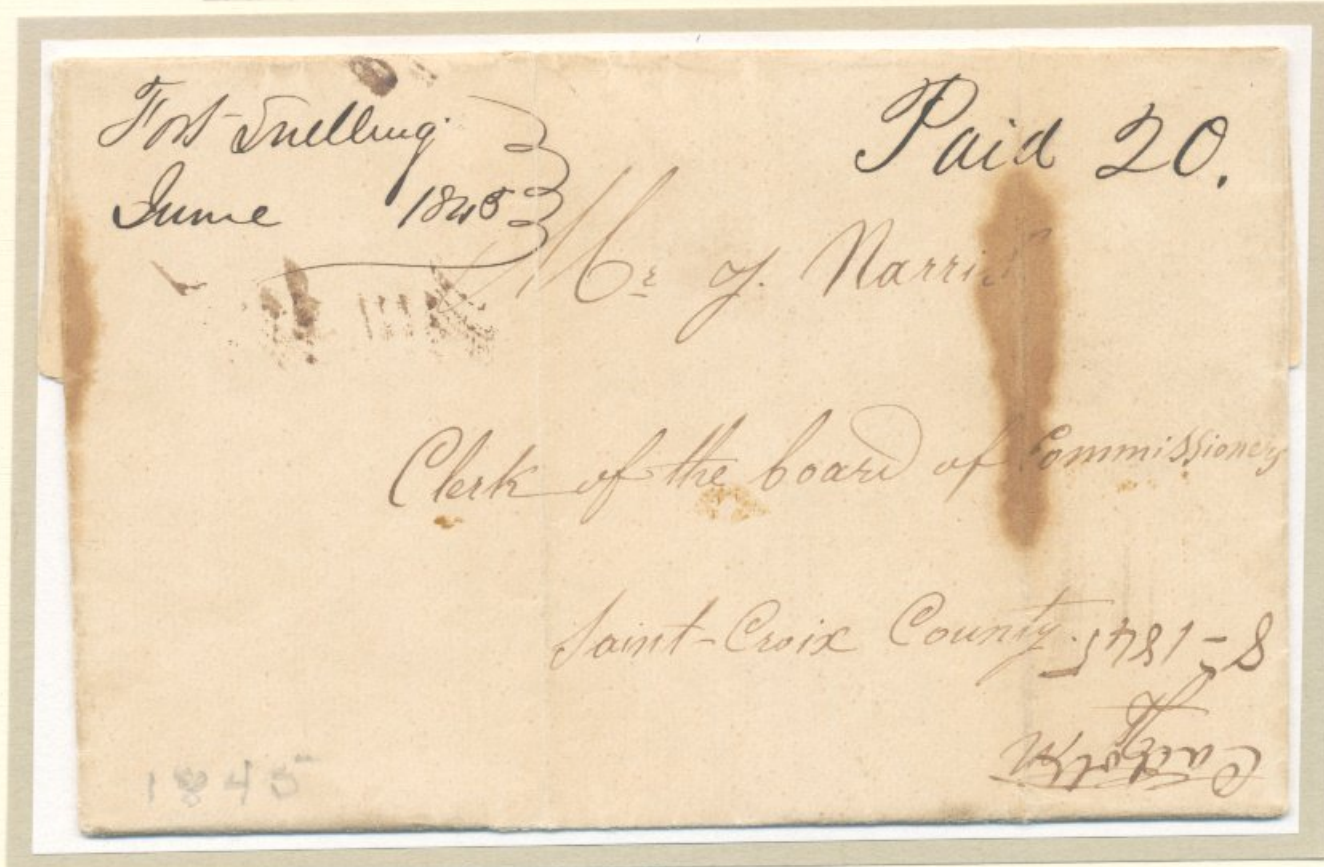 Fort Snelling
June 1845
Paid 20.
Mr J. Narris
Clerk of the board of Commissioners
Saint-Croix County
8 - 1845
1845